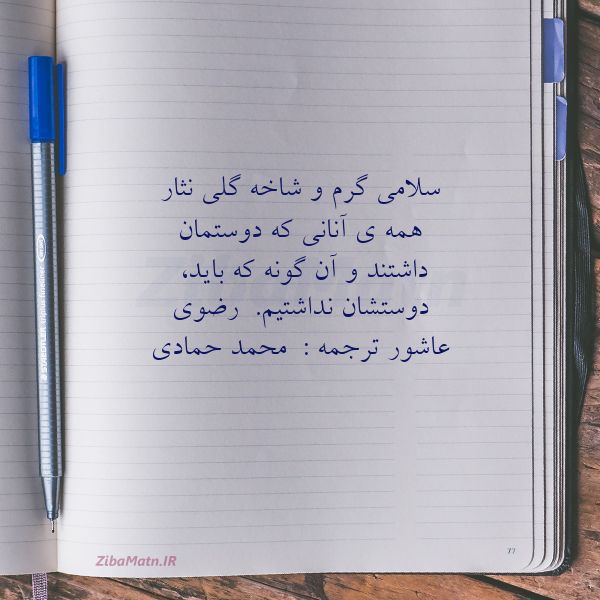 سلامی گرم و شاخه گلی نثار
همه ی آنانی که دوستمان
داشتند و آن گونه که باید،
دوستشان نداشتیم. رضوی
عاشور ترجمه : محمد حمادی
ZibaMatn.IR
77